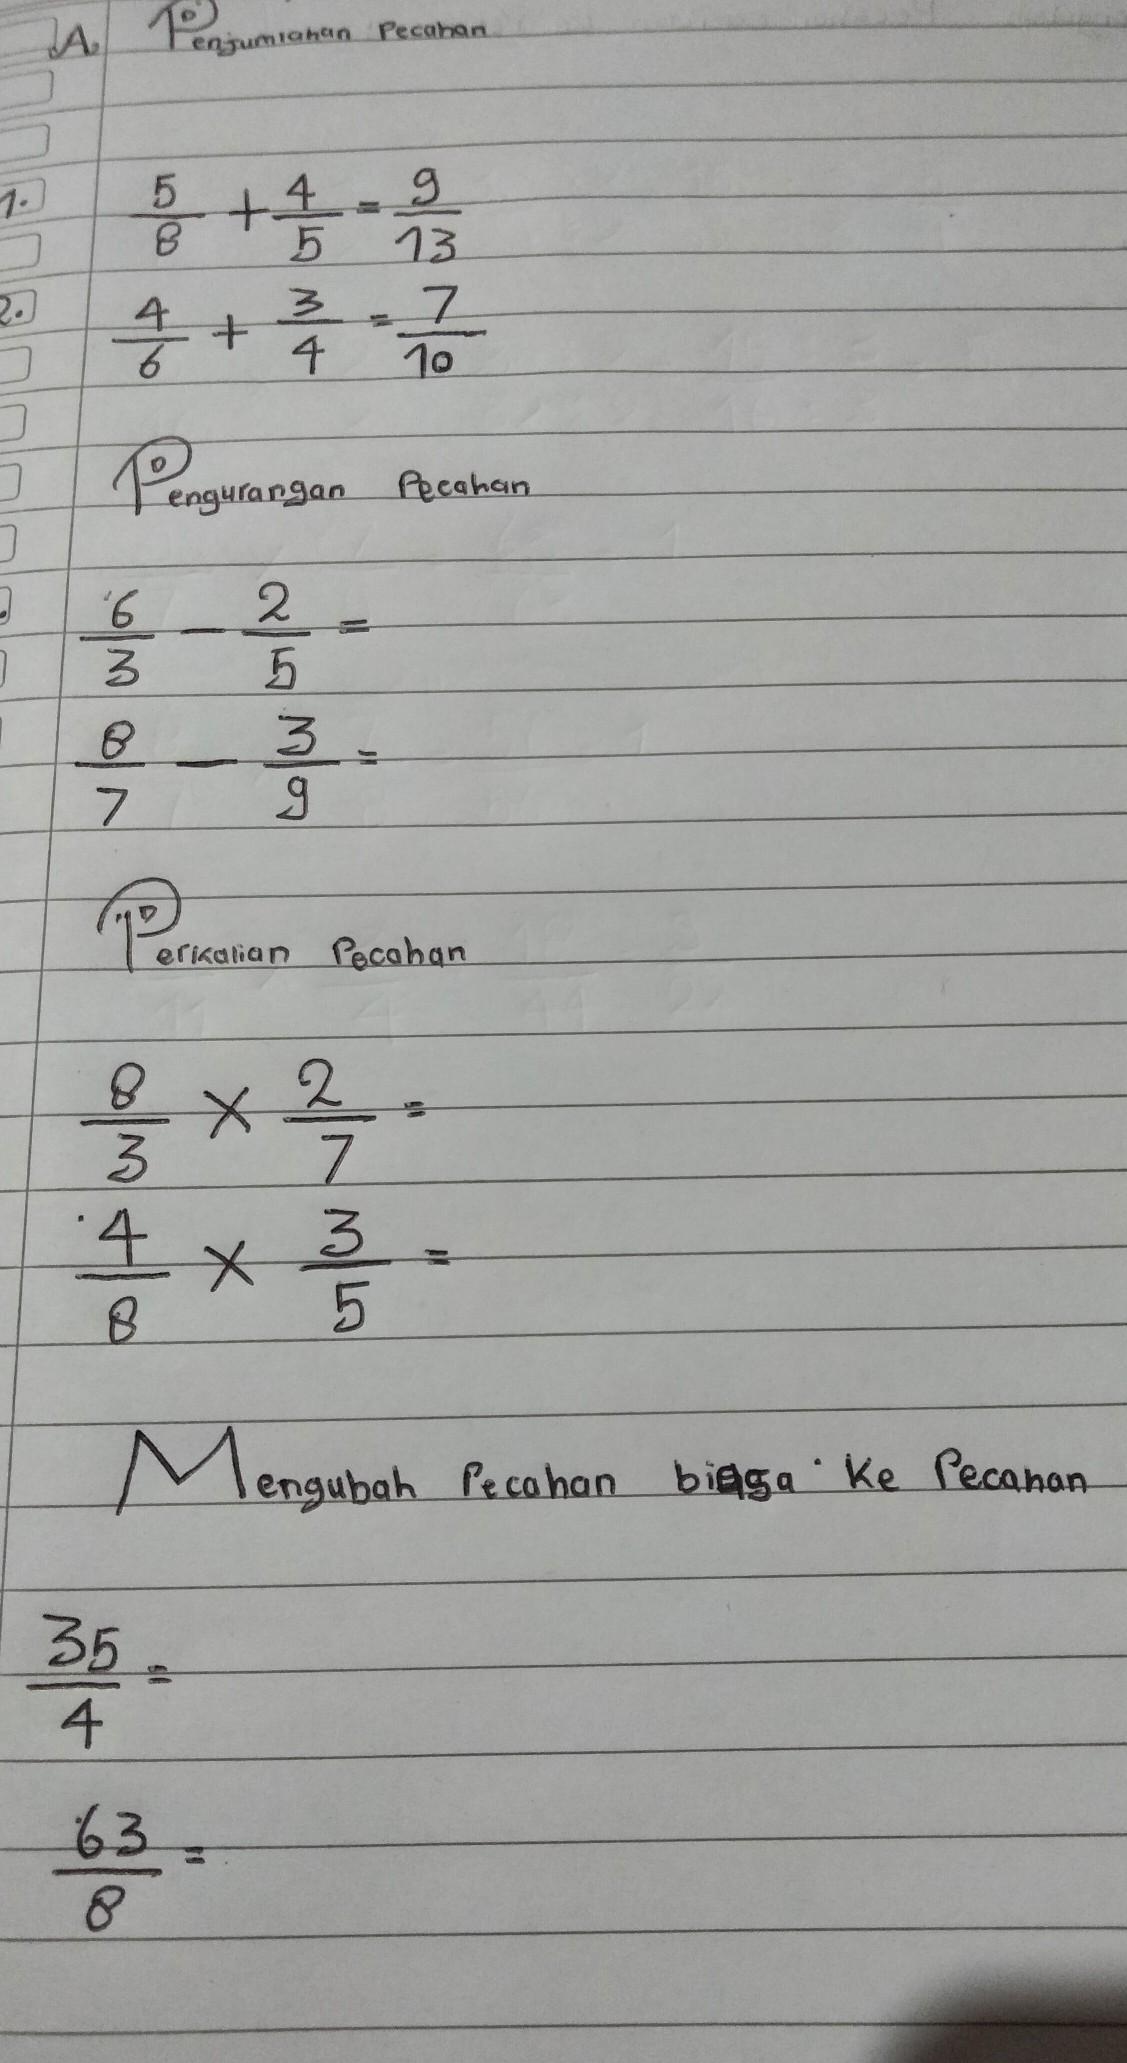 A. Penjumlahan Pecahan
1. 5/8 + 4/5 = 9/13
2. 4/6 + 3/4 = 7/10
Pengurangan Pecahan
6/3 - 2/5 =
8/7 - 3/9 =
Perkalian Pecahan
8/3 × 2/7 =
4/8 × 3/5 =
Mengubah Pecahan biasa ke Pecahan
35/4 =
63/8 =